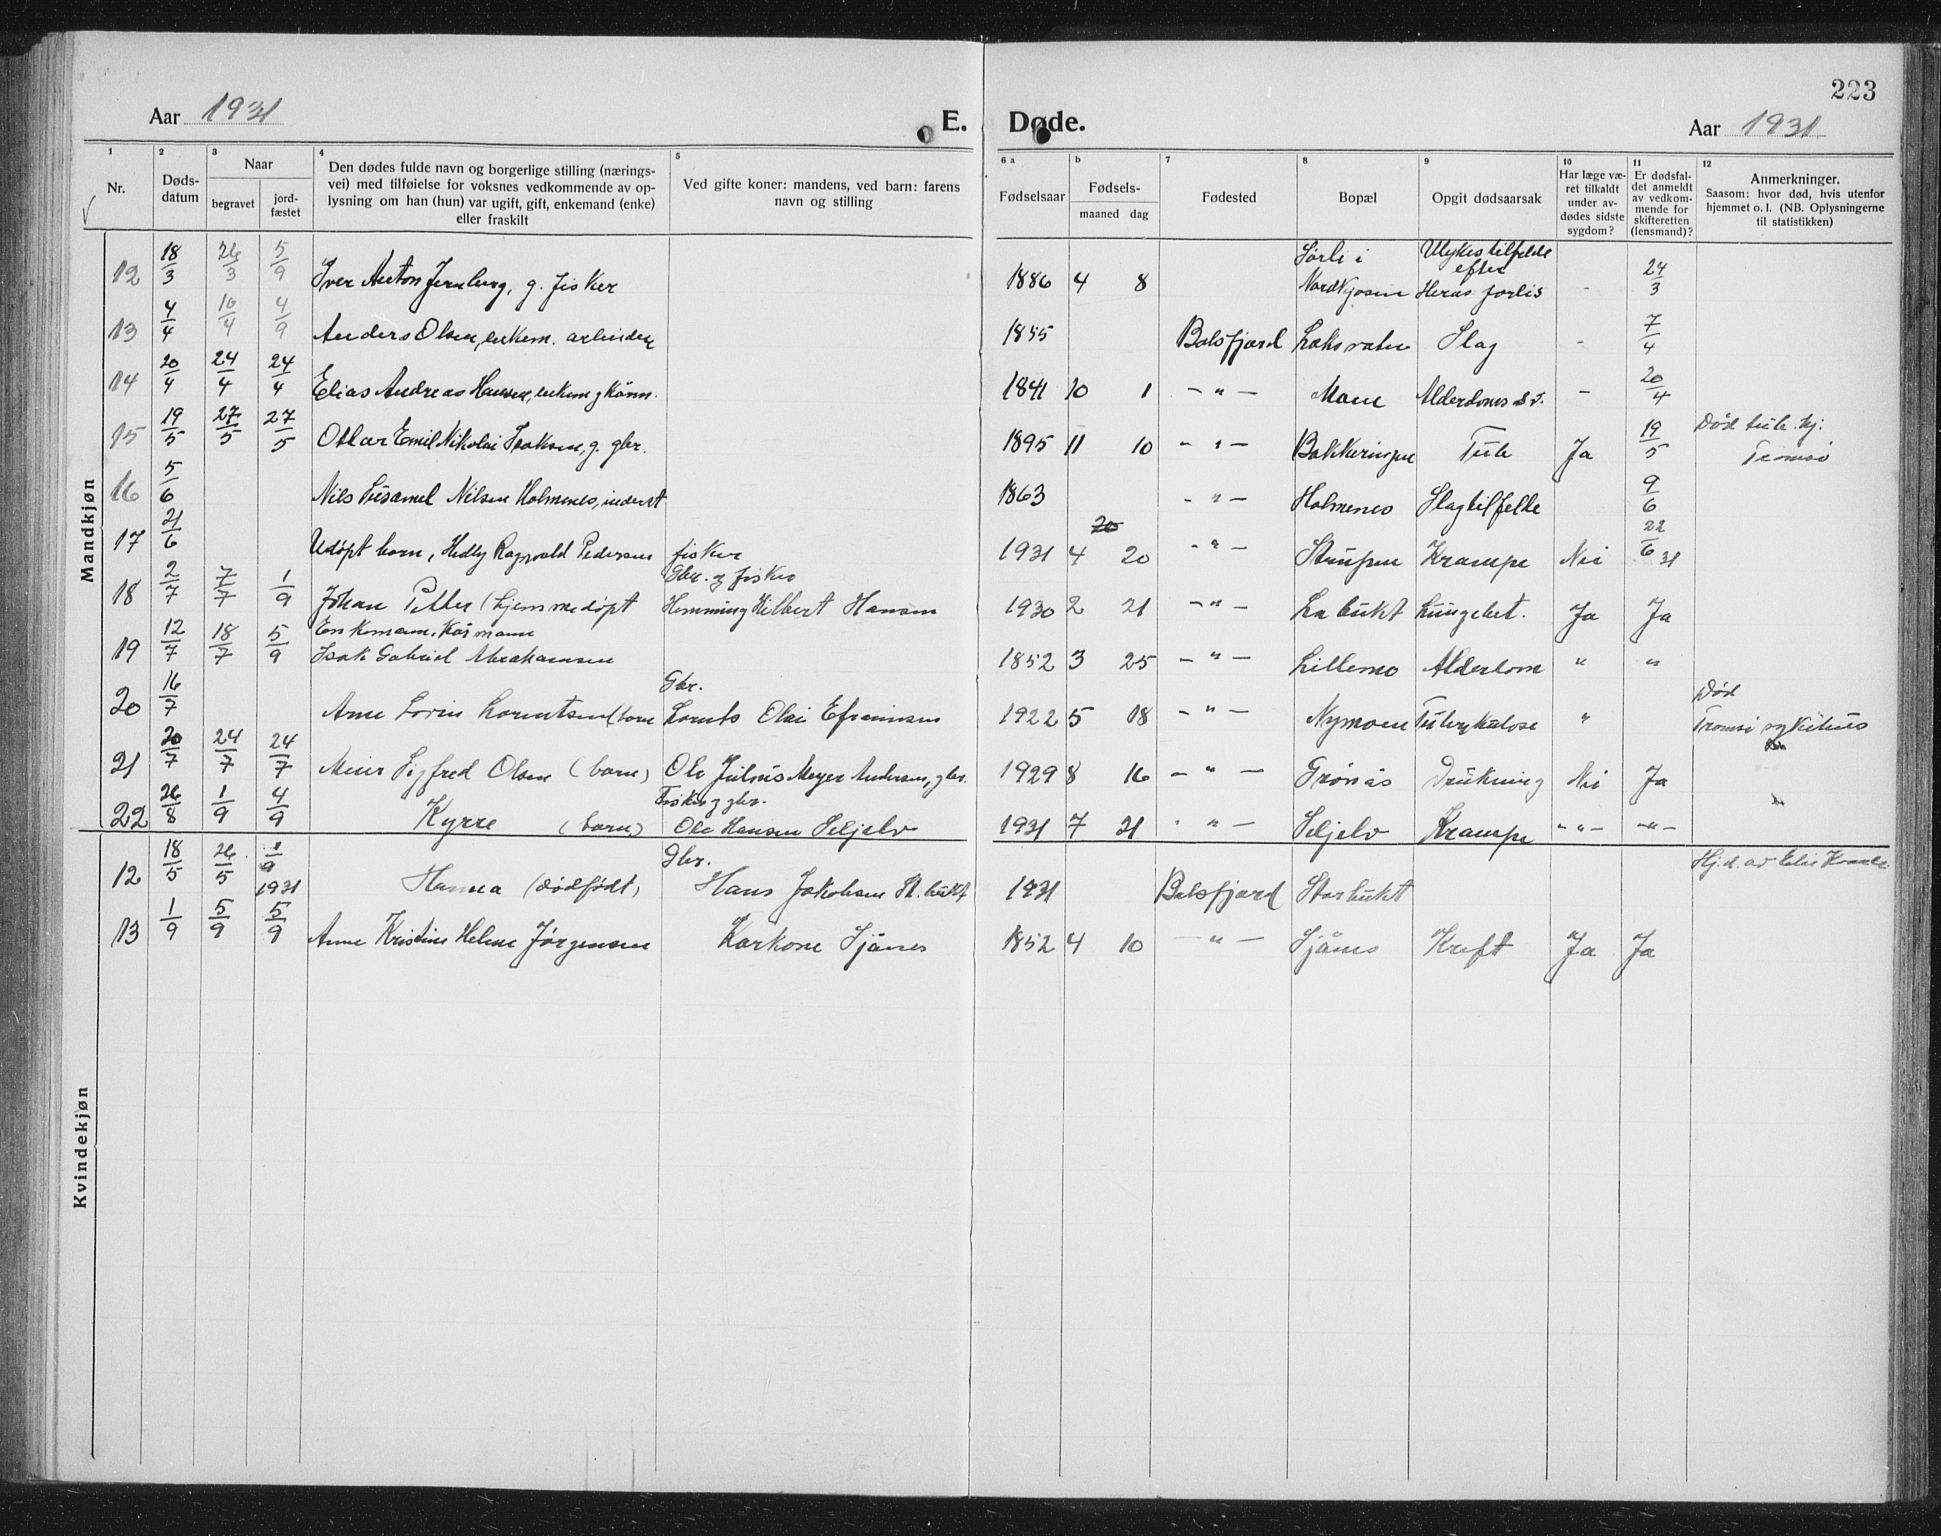 223
Aar 1931
E. Døde.
Aar 1931
1 2 3 4 5 6 a b 7 8 9 10 11 12
Nr.
Døds-
datum
Naar
begravet
jord-
fæstet
Den dødes fulde navn og borgerlige stilling (nærings-
vei) med tilføielse for voksnes vedkommende av op-
lysning om han (hun) var ugift, gift, enkemand (enke)
eller fraskilt
Ved gifte koner: mandens, ved barn: farens
navn og stilling
Fødselsaar
Fødsels-
maaned dag
Fødested
Bopæl
Opgit dødsaarsak
Har læge væ-
ret tilkaldt
under av-
dødes sidste
sygdom?
Er dødsfal-
det anmeldt
av vedkom-
mende for
skifteretten
(lensmand)?
Anmerkninger.
Saasom: hvor død, hvis utenfor
hjemmet o. l. (NB. Oplysningerne
til statistikken)
Mandkjøn
12 18/3 26/3 5/9 Iver Anton Jernberg, g. fisker 1886 4 8 Sørli i Nordkjosen Ulykkestilfelde efter Heras forlis - 24/3
13 4/4 10/4 4/9 Anders Olsen, enkem. arbeider 1855 Balsfjord Laksvatn Slag - 7/4
14 20/4 24/4 24/4 Elias Andreas Hansen, enkem. g kånn. 1841 10 1 - " - Moen Alderdoms s.v. - 20/4
15 19/5 27/5 27/5 Oskar Emil Nikolai Isaksen, g. gbr. 1895 11 10 - " - Bakkeringen Tub Ja 19/5 Død tub. hj. Tromsø
16 5/6 Nils Nilsen Holmenes, inderst 1863 - " - Holmenes Slagtilfelde 9/6
17 21/6 Udøpt barn, Hedly Ragnvald Pedersen fisker 1931 4 20 20 - " - Strupen Krampe Nei 22/6 31
18 2/7 7/7 1/9 Johan Petter (hjemmedøpt Gbr. og fisker Hemming Hilbert Hansen 1930 2 21 - " - Labukt Lungebet. Ja Ja
19 12/7 18/7 5/9 Enkemann, Kårmann Isak Gabriel Abrahamsen 1852 3 25 - " - Lillemo Alderdom " "
20 16/7 Arne Lorin Lorentsen (barn Gbr. Lorents Olai Efraimsen 1922 5 18 - " - Nymoen Tuberkulose " Død Tromsø sykehus
21 20/7 24/7 24/7 Meier Sigfred Olsen (barn) Ole Julius Meyer Andersen, gbr. 1929 8 16 - " - Grønås Drukning Nei Ja
22 26/8 1/9 4/9 Kyrre (barn) Fisker g gbr. Ole Hansen Seljelv 1931 7 21 " " - Seljelv Krampe - " - - " -
Kvindekjøn
12 18/5 26/5 1/9 1931 Hanna (dødfødt) Gbr. Hans Jakobsen St. bukt 1931 Balsfjord Storbukt Hj.d. av
13 1/9 5/9 5/9 Anne Kristine Helene Jørgensen Karkone Sjånes 1852 4 10 - " - Sjånes Kreft Ja Ja